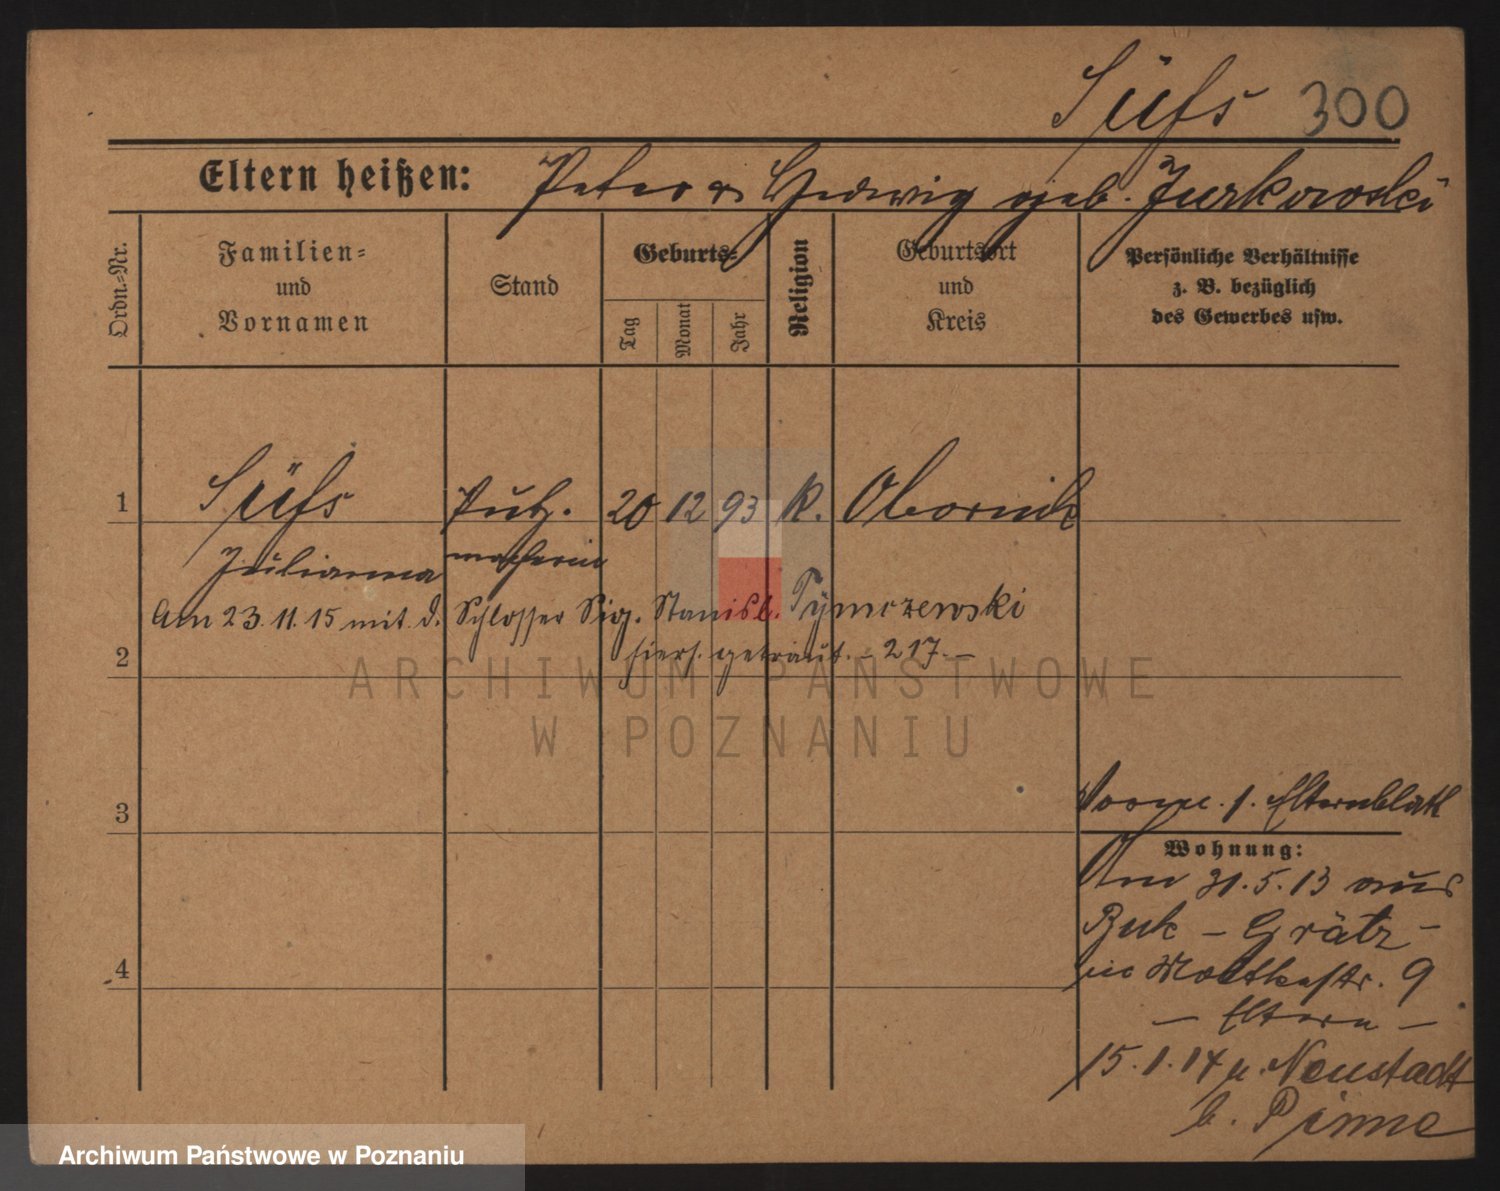 Süß 300
Eltern heißen: Peter u. Hedwig geb. Jurkowski
Ordn.=Nr.
Familien=
und
Vornamen
Stand
Geburts=
Tag
Monat
Jahr
Religion
Geburtsort
und
Kreis
Persönliche Verhältnisse
z. B. bezüglich
des Gewerbes usw.
1 Süß Putz. 20 12 93 K. Obornik
Julianna macherin
Am 23.11.15 mit d. Schlosser Sig. Stanisl. Tymczewski
2 hiers. getraut. – 217. –
3
s. Elternblatt
Wohnung:
Am 31.5.13 aus
Buk – Grätz –
in Moltkestr. 9
– Eltern –
15.1.14 n. Neustadt
b. Pinne
4
ARCHIWUM PAŃSTWOWE
W POZNANIU
Archiwum Państwowe w Poznaniu